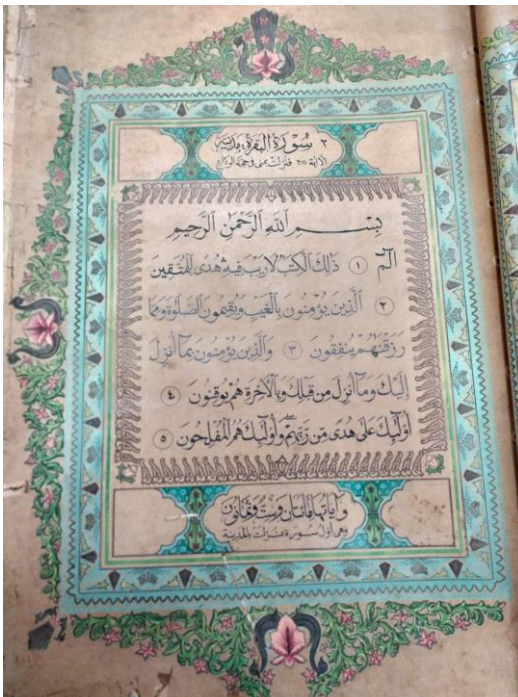 ٢ سُورَةُ الْبَقَرَةِ مَدَنِيَّة
الا آية ٢٨١ فنزلت بمنى في حجة الوداع
بِسْمِ اللَّهِ الرَّحْمَٰنِ الرَّحِيمِ
الٓمٓ ١ ذَٰلِكَ الْكِتَٰبُ لَا رَيْبَ فِيهِ هُدًى لِلْمُتَّقِينَ
٢ الَّذِينَ يُؤْمِنُونَ بِالْغَيْبِ وَيُقِيمُونَ الصَّلَوٰةَ وَمِمَّا
رَزَقْنَٰهُمْ يُنْفِقُونَ ٣ وَالَّذِينَ يُؤْمِنُونَ بِمَآ أُنْزِلَ
إِلَيْكَ وَمَآ أُنْزِلَ مِنْ قَبْلِكَ وَبِالْآخِرَةِ هُمْ يُوقِنُونَ ٤
أُولَٰٓئِكَ عَلَىٰ هُدًى مِنْ رَبِّهِمْ وَأُولَٰٓئِكَ هُمُ الْمُفْلِحُونَ ٥
وَآيَاتُهَا مِائَتَانِ وَسِتٌّ وَثَمَانُونَ
وهي أول سورة نزلت بالمدينة